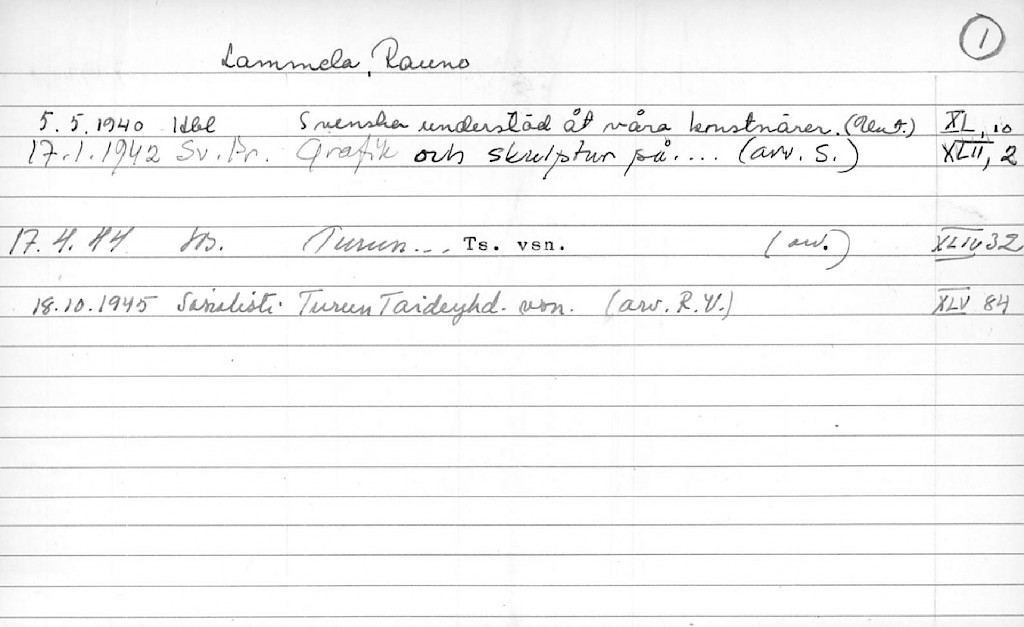 1
Lammela, Rauno
5. 5. 1940 Hbl Svenska understöd åt våra konstnärer. XL, 10
17.1.1942 Sv. Pr. Grafik och skulptur på.... (arv. S.) XLII, 2
17. 4. 44 Turun... Ts. vsn. (arv.) XLIV 32
18.10.1945 Sosialisti. Turun Taideyhd. vsn. (arv. R.V.) XLV 84